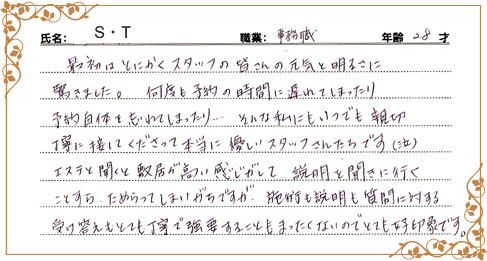 氏名: S・T 職業: 事務職 年齢 28 才
最初はとにかくスタッフの皆さんの元気と明るさに
驚きました。何度も予約の時間に遅れてしまったり
予約自体を忘れてしまったり… そんな私にもいつでも親切
丁寧に接してくださって本当に優しいスタッフさんたちです(泣)
エステと聞くと敷居が高い感じがして、説明を聞きに行く
ことすら、ためらってしまいがちですが、施術も説明も質問に対する
受け答えもとても丁寧で強要することもまったくないのでとても好印象です。